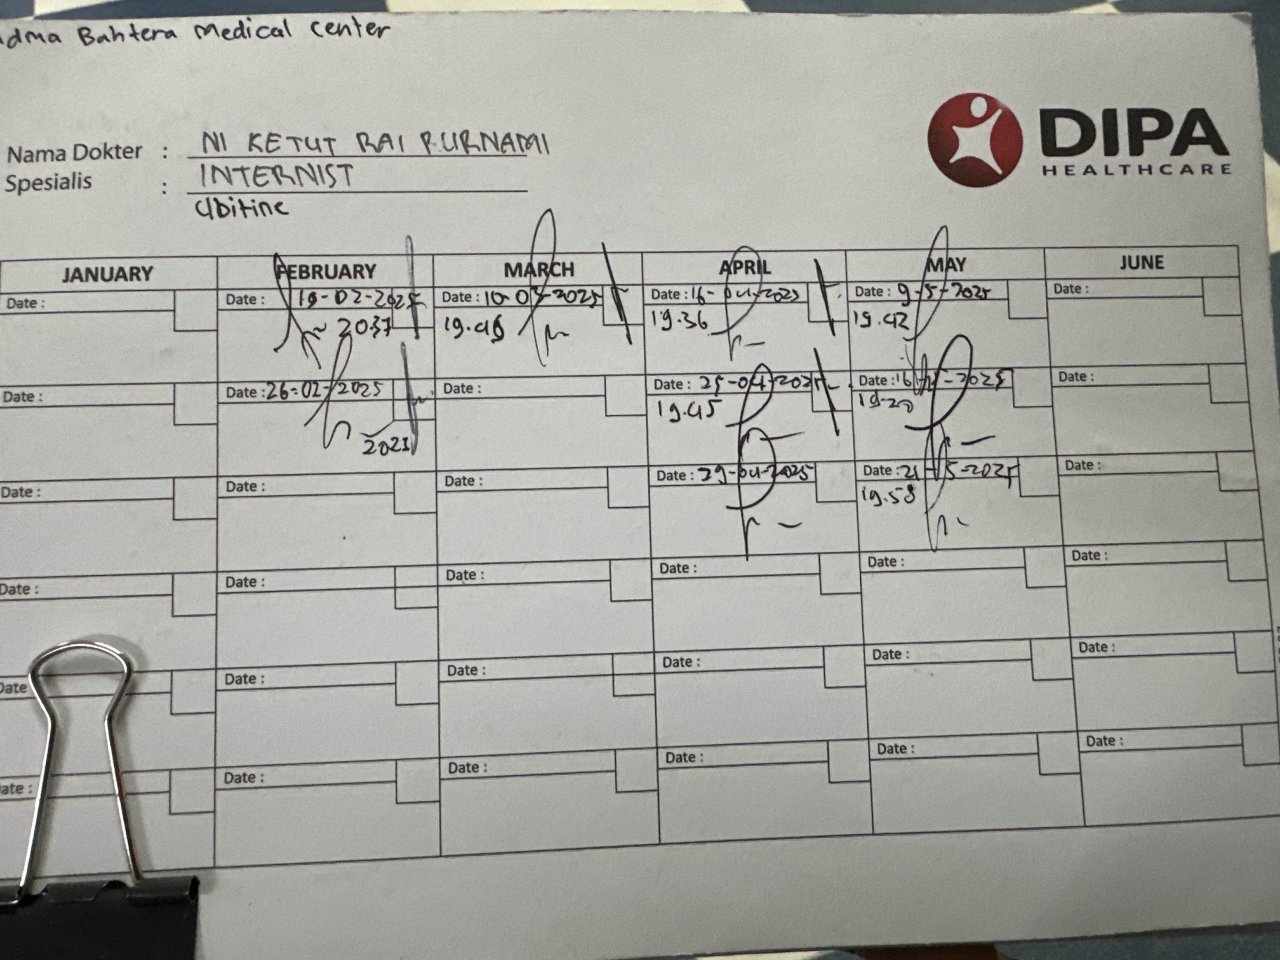 Bahtera Medical Center
DIPA
HEALTHCARE
Nama Dokter : NI KETUT RAI PURNAMI
Spesialis : INTERNIST
Ubitine
JANUARY FEBRUARY MARCH APRIL MAY JUNE
Date : Date : 19-02-2025 Date : 10-03-2025 Date : 16-04-2025 Date : 9-5-2025 Date :
2037 19.46 19.36 19.42
Date : Date : 26-02-2025 Date : Date : 25-04-2025 Date : 16-5-2025 Date :
2021 19.45 19.20
Date : Date : Date : Date : 29-04-2025 Date : 21-5-2025 Date :
19.58
Date : Date : Date : Date : Date : Date :
Date Date : Date : Date : Date : Date :
Date : Date : Date : Date : Date :